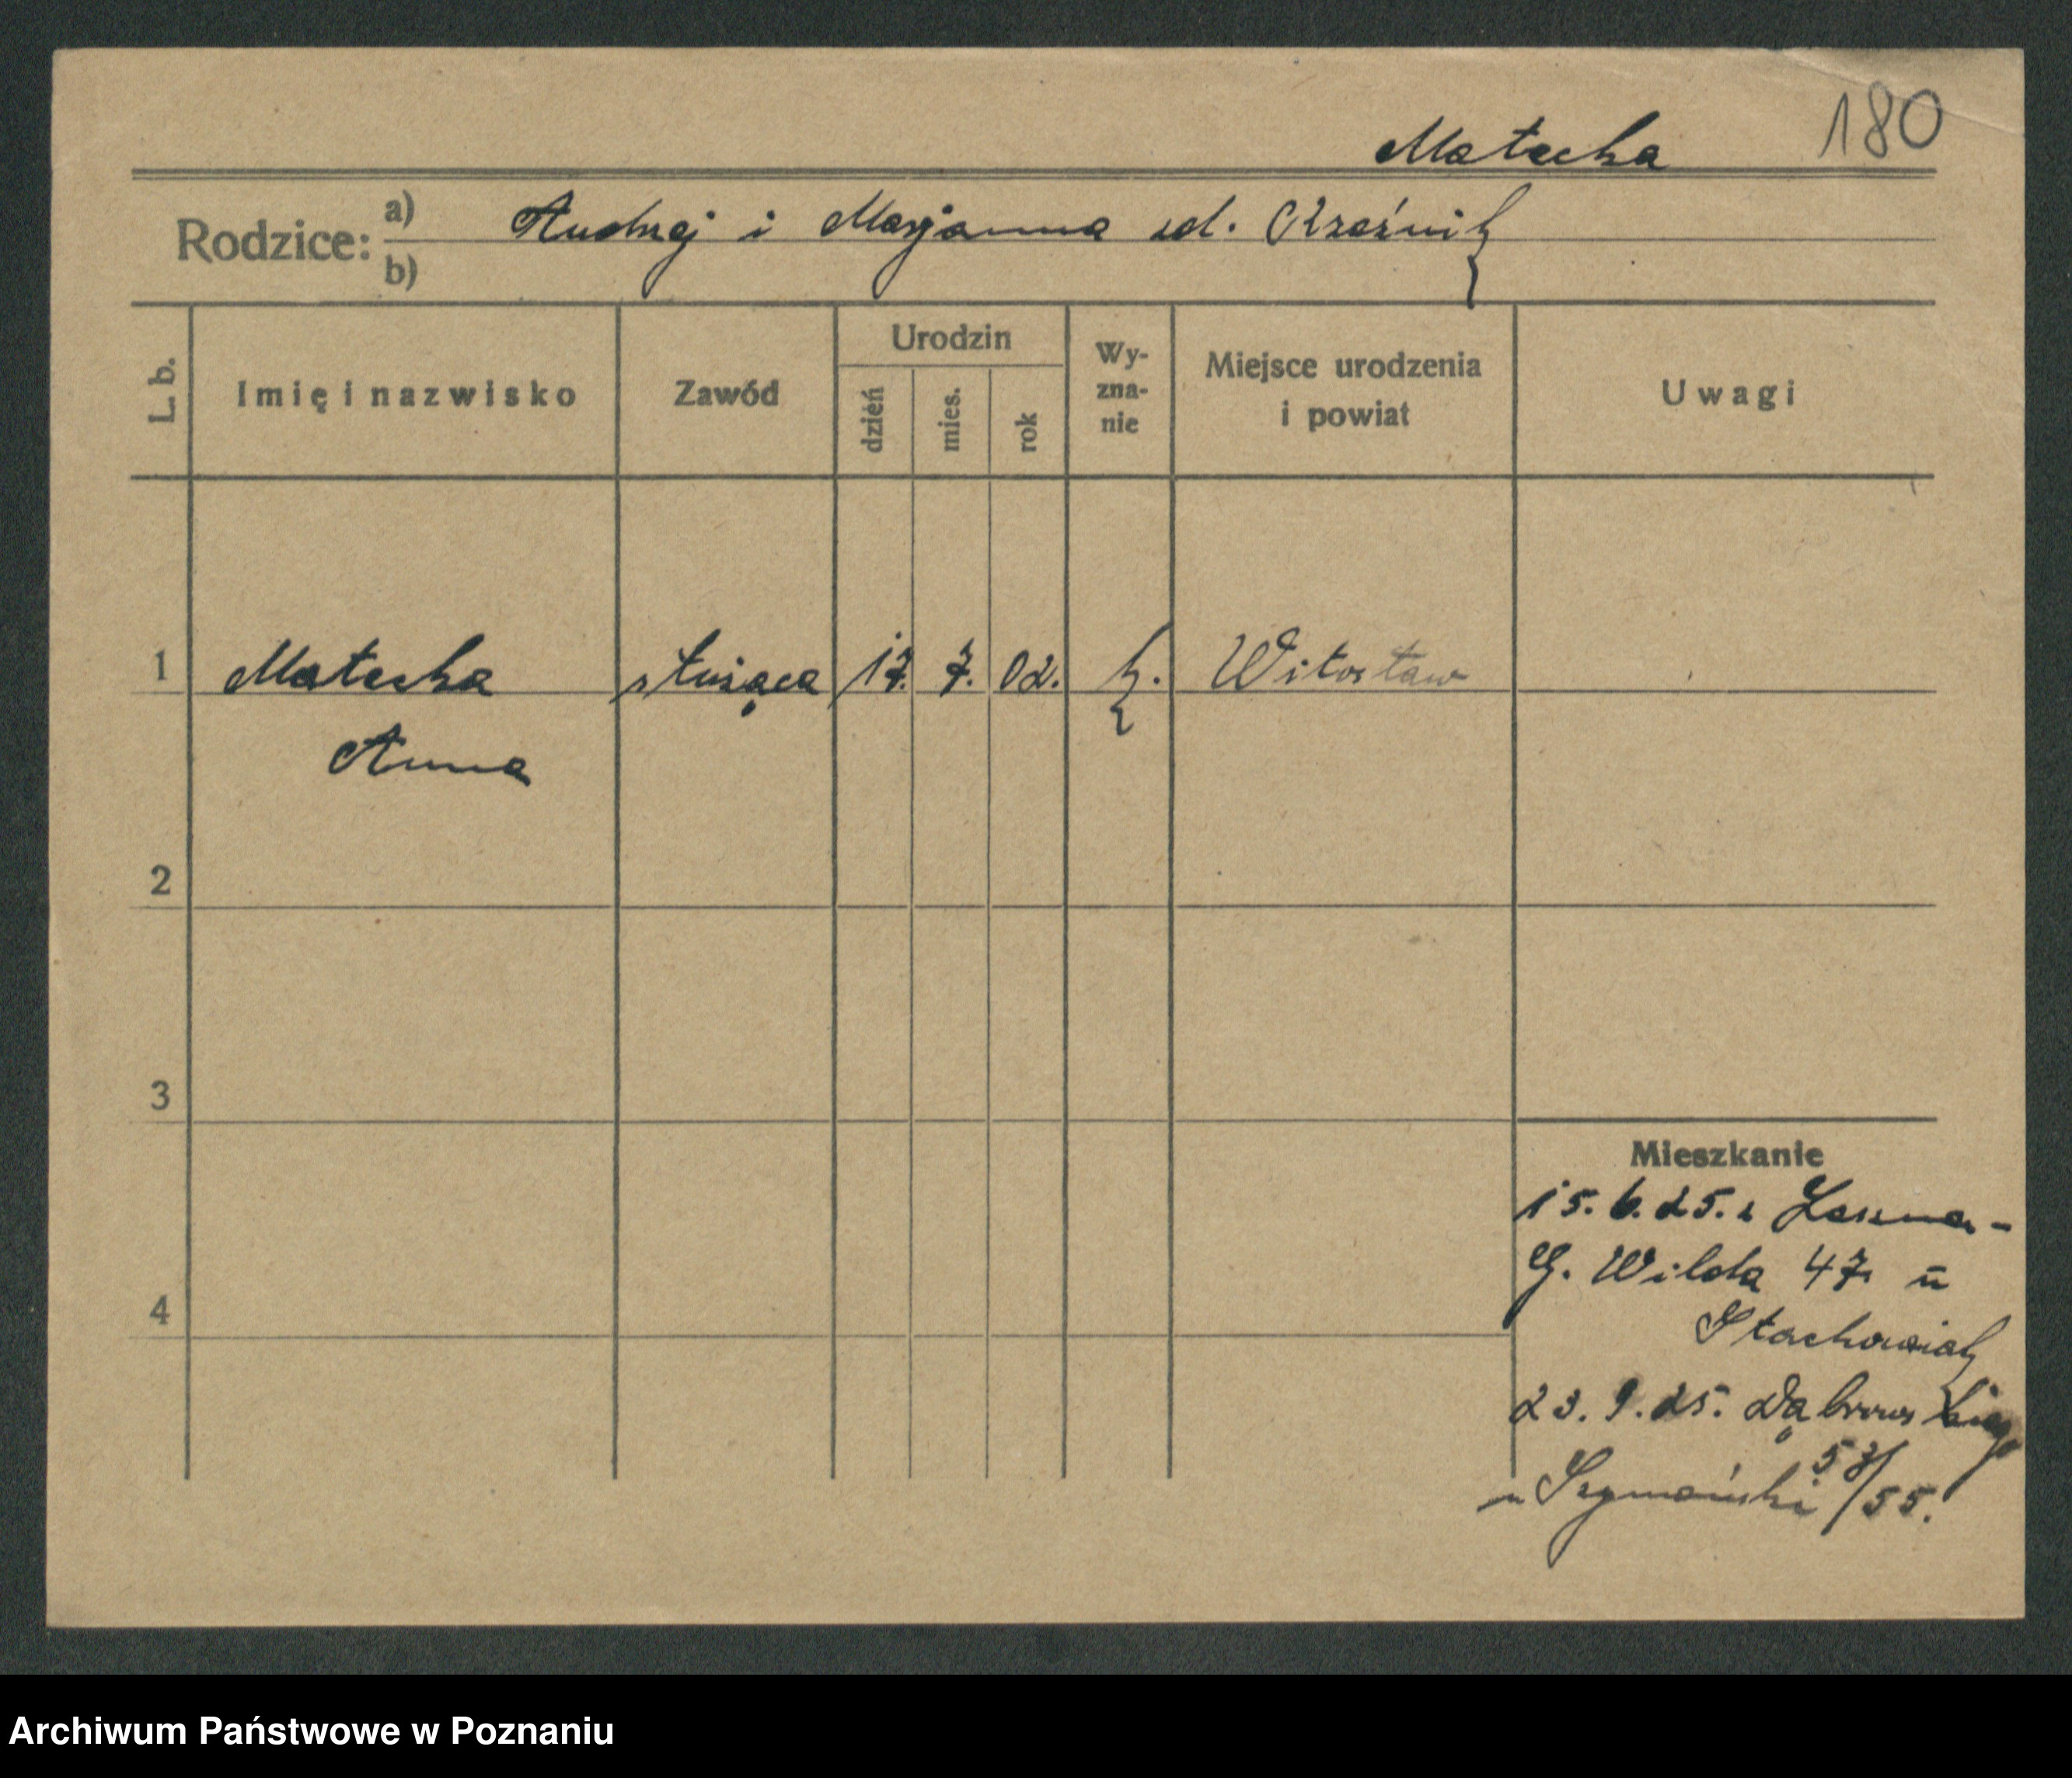 180
Matecka
Rodzice: a) Andrzej i Marjanna zd. Rzeźnik
b)
L. b.
Imię i nazwisko
Zawód
Urodzin
dzień
mies.
rok
Wy-
zna-
nie
Miejsce urodzenia
i powiat
Uwagi
1 Matecka służąca 17. 7. 02. k. Witosław
Anna
2
3
Mieszkanie
15.6.25. z
G. Wilda 47 u
4
Stachowiak
23.9.25. Dąbrowskiego
53/55.
u Szymański
Archiwum Państwowe w Poznaniu